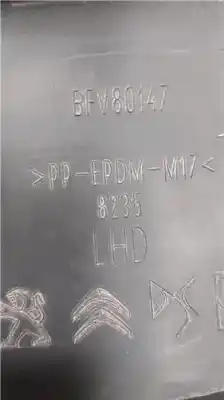 BFV80147
>PP-EPDM-M17<
8235
LHD
DS